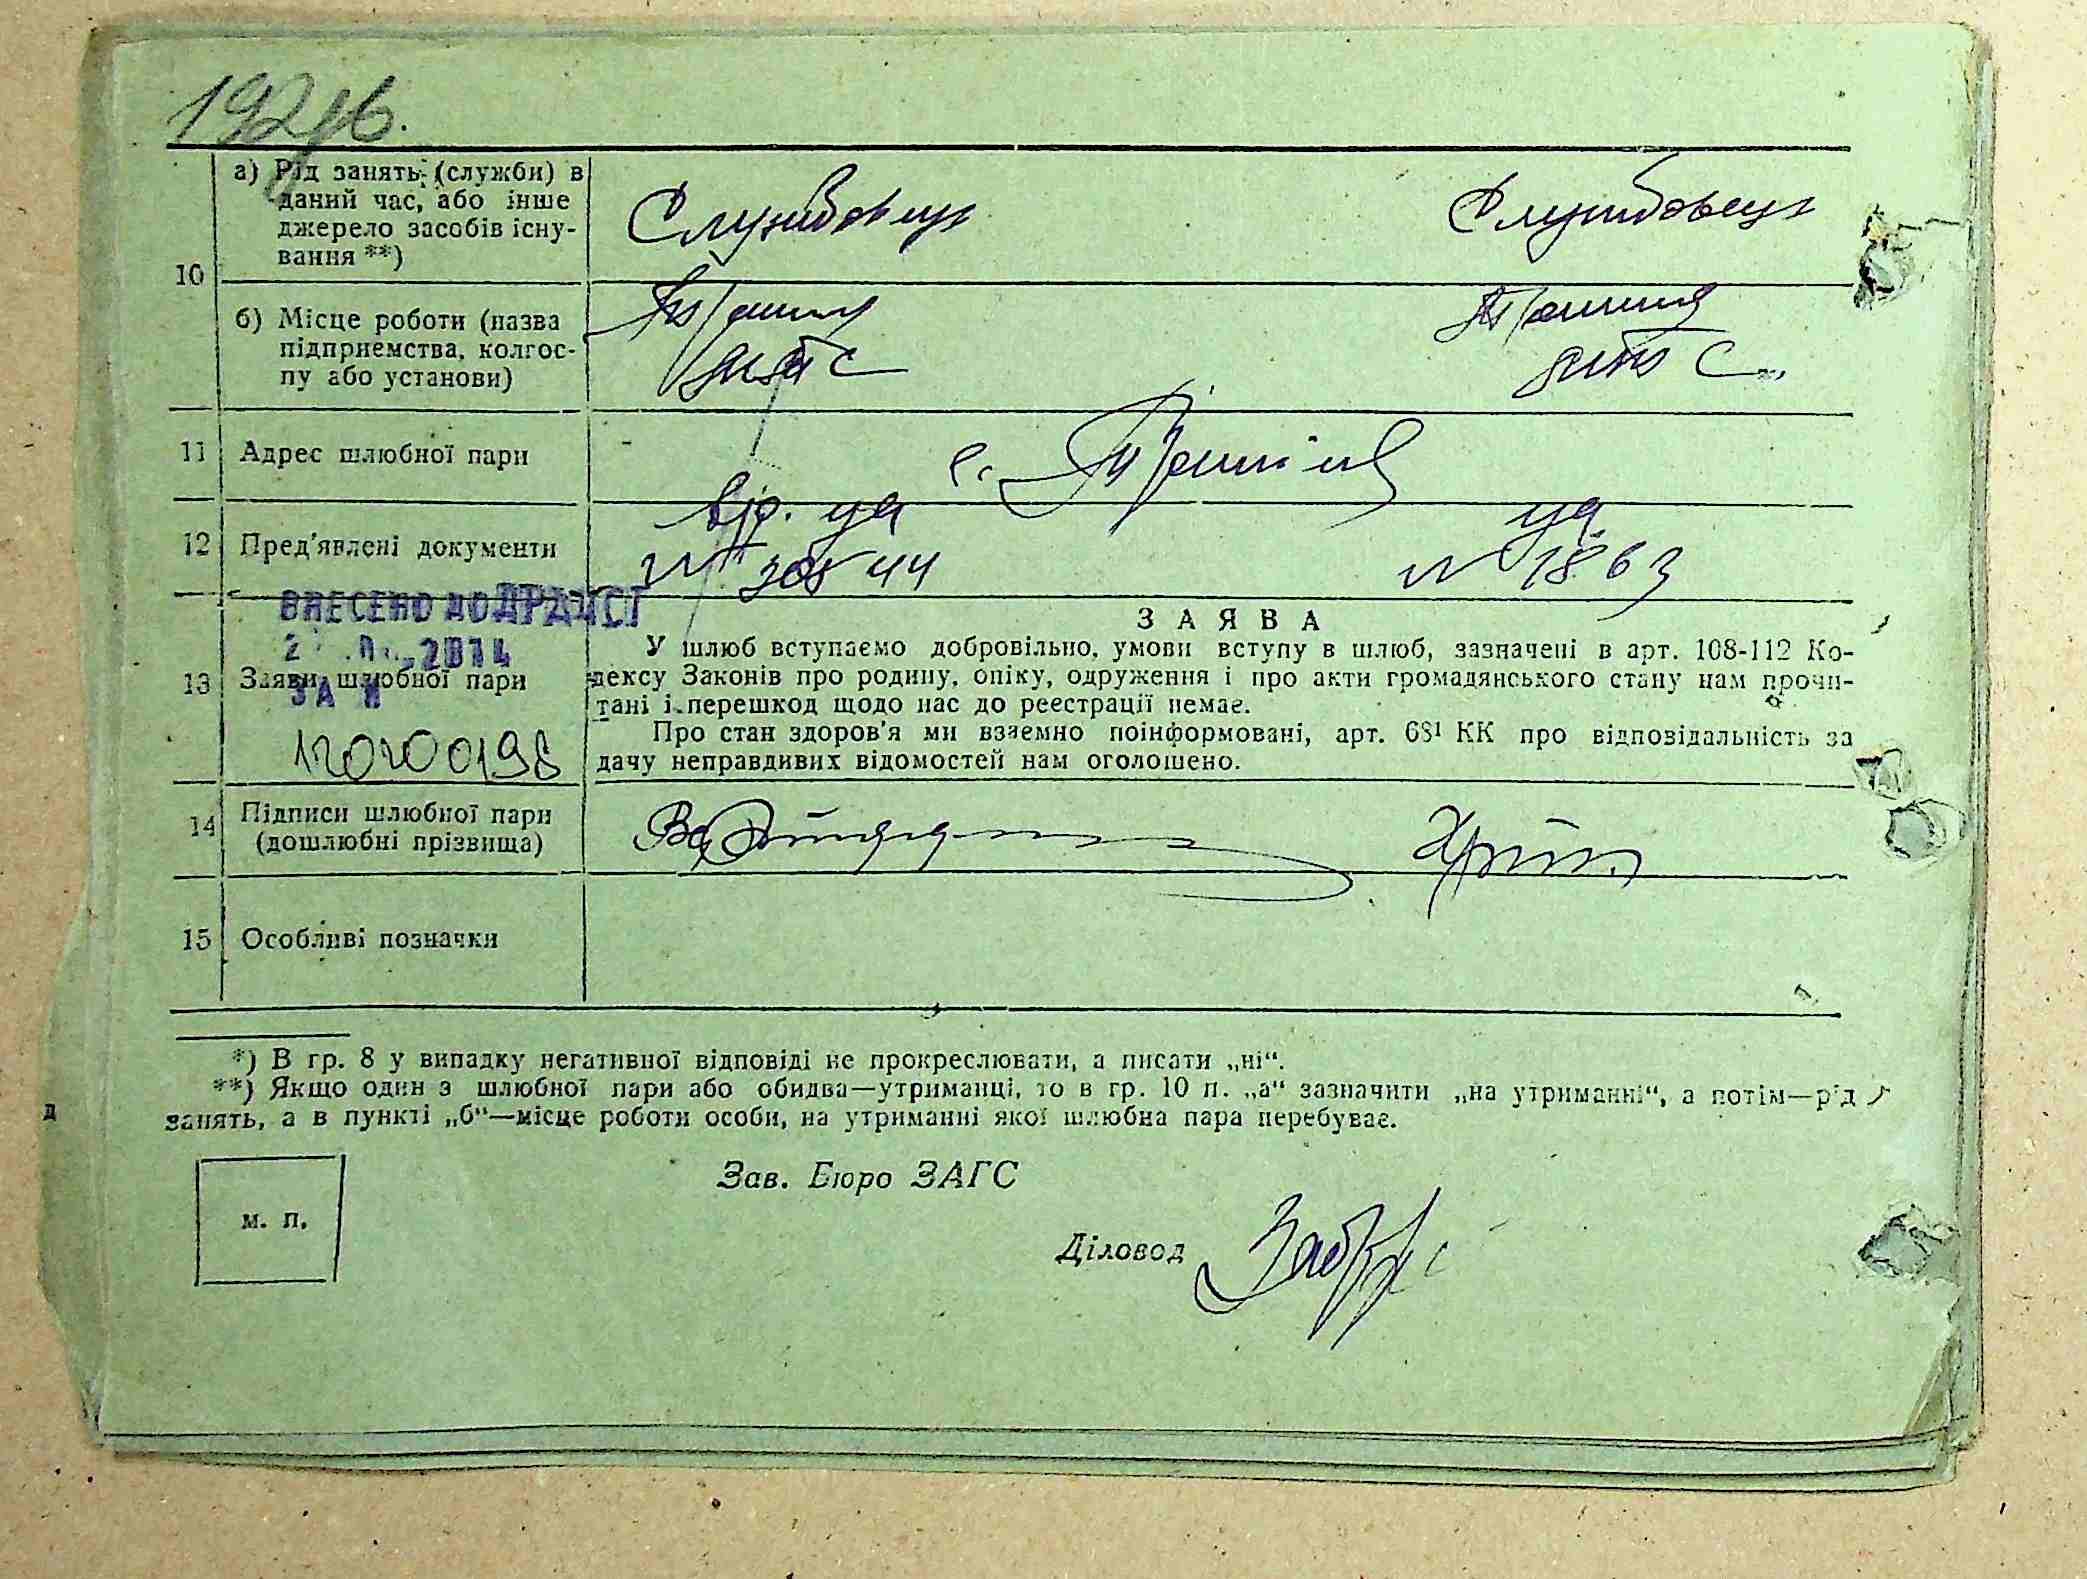 а) Рід занять (служби) в
даний час, або інше
джерело засобів існу-
вання **)
Службовець
Службовець
10
б) Місце роботи (назва
підприємства, колгос-
пу або установи)
11
Адрес шлюбної пари
с.
12
Пред'явлені документи
№
44
№ 1863
ВНЕСЕНО ДО ДРАЦСГ
2014
ЗА №
120200198
13
Заяви шлюбної пари
ЗАЯВА
У шлюб вступаємо добровільно, умови вступу в шлюб, зазначені в арт. 108-112 Ко-
дексу Законів про родину, опіку, одруження і про акти громадянського стану нам прочи-
тані і перешкод щодо нас до реєстрації немає.
Про стан здоров'я ми взаємно поінформовані, арт. 68¹ КК про відповідальність за
дачу неправдивих відомостей нам оголошено.
14
Підписи шлюбної пари
(дошлюбні прізвища)
15
Особливі позначки
*) В гр. 8 у випадку негативної відповіді не прокреслювати, а писати „ні“.
**) Якщо один з шлюбної пари або обидва—утриманці, то в гр. 10 п. „а“ зазначити „на утриманні“, а потім—рід
занять, а в пункті „б“—місце роботи особи, на утриманні якої шлюбна пара перебуває.
Зав. Бюро ЗАГС
м. п.
Діловод